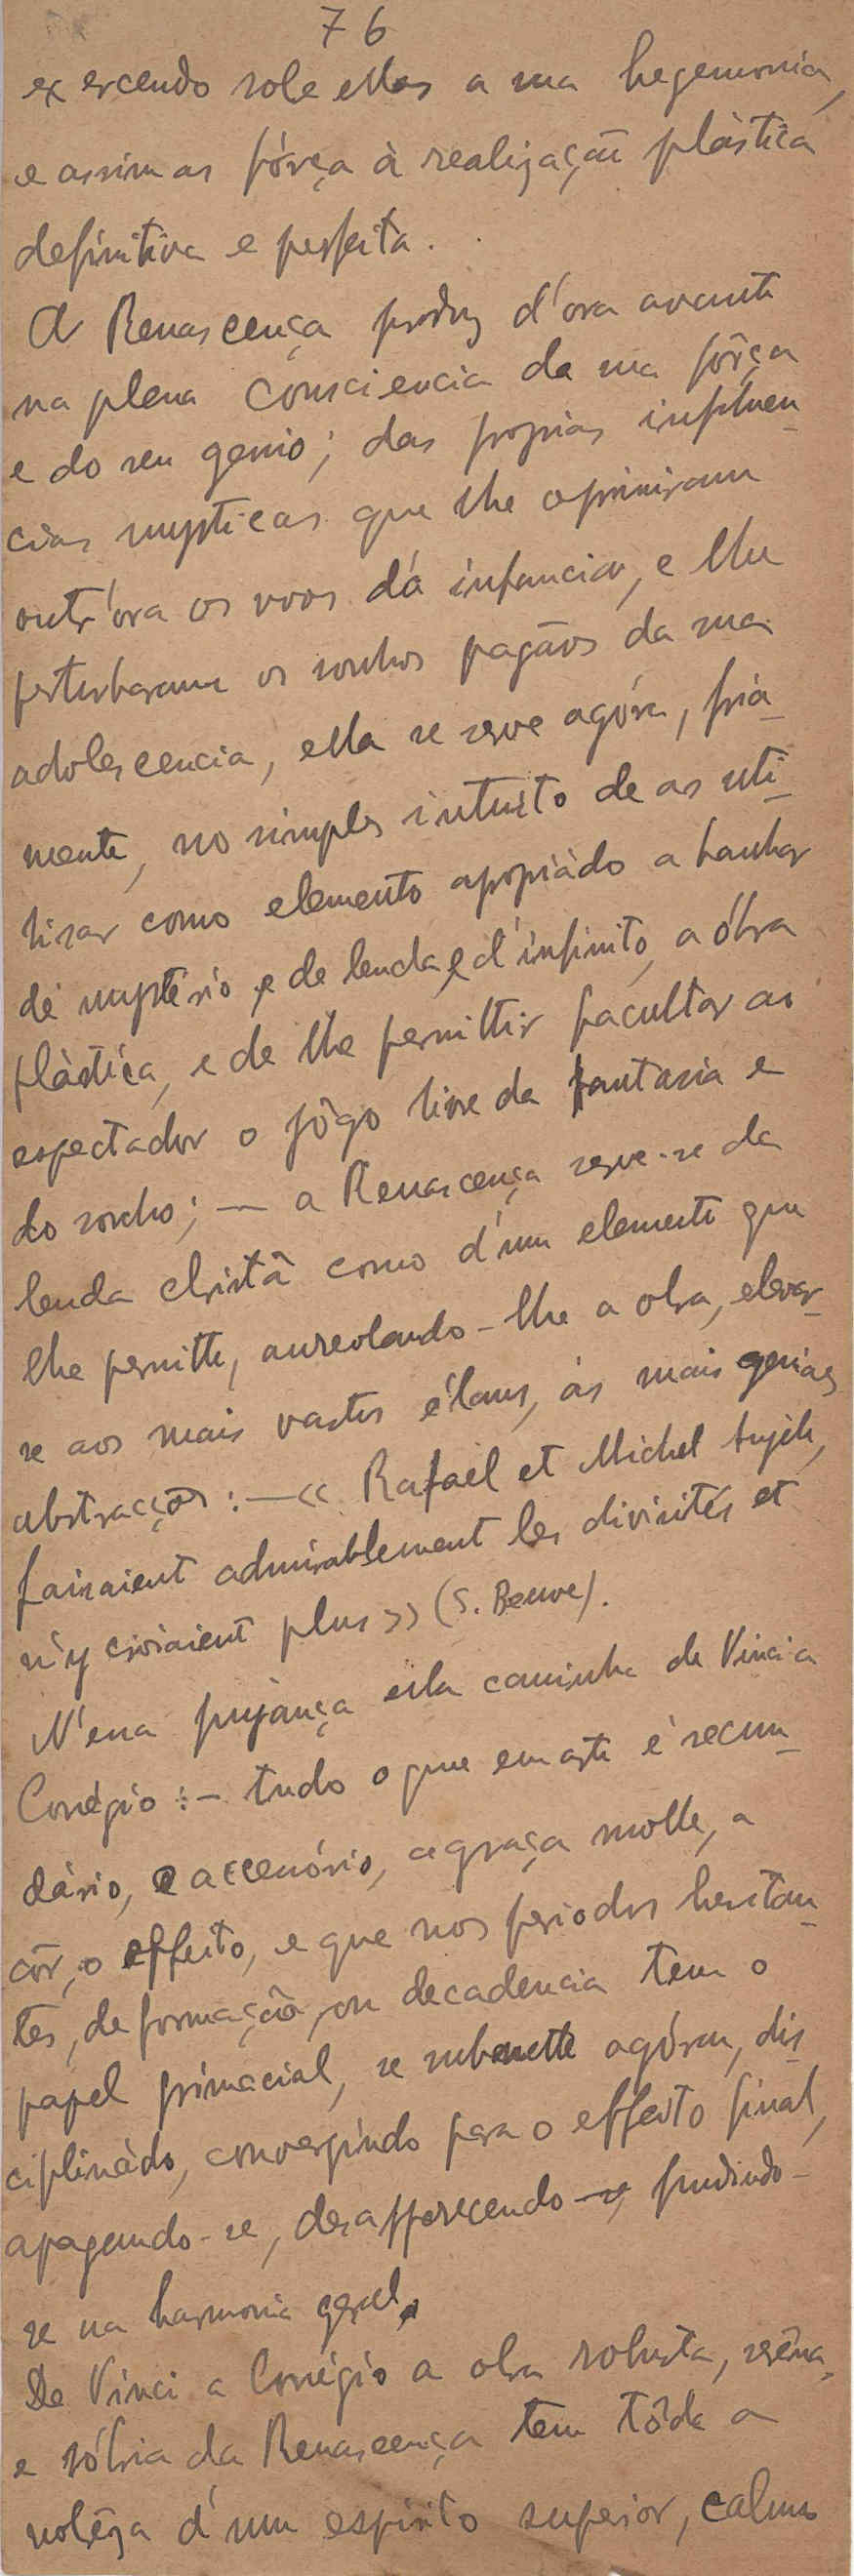 76
exercendo sobre ellas a sua hegemonia,
e assim as fórça à realização plàstica
definitiva e perfeita.
A Renascença produz d'ora avante
na plena consciencia da sua fôrça
e do seu genio; das proprias influen-
cias mysticas que lhe oprimiram
outr'ora os voos dá infancia, e lhe
perturbaram os sonhos pagãos da sua
adolescencia, ella se serve agóra, fria-
mente, no simples intuito de as uti-
lisar como elemento apropriàdo a banhar
dé mystério, e de lenda, e d'infinito, a óbra
plàstica, e de lhe permittir facultar ao
espectador o jôgo livre da fantasia e
do sonho; — a Renascença serve-se da
lenda christã como d'um elemento que
lhe permitte, aureolando-lhe a obra, elevar-
se aos mais vastos élans, às mais geniaes
abstracções: — « Rafael et Michel Angelo,
faisaient admirablement les divinités et
n'y croiaient plus » (S. Beuve).
N'essa pujança ella caminha de Vinci a
Corrégio: — tudo o que em arte é secun-
dário, e accessório, a graça molle, a
côr, o effeito, e que nos periodos hesitan-
tes, de formação, ou decadencia tem o
papel primacial, se submette agóra, dis-
ciplinàdo, convergindo para o effeito final,
apagando-se, desapparecendo, fundindo-
se na harmonia geral.
De Vinci a Corrégio a obra robusta, serêna,
e sóbria da Renascença tem tôda a
nobrêza d'um espirito superior, calmo